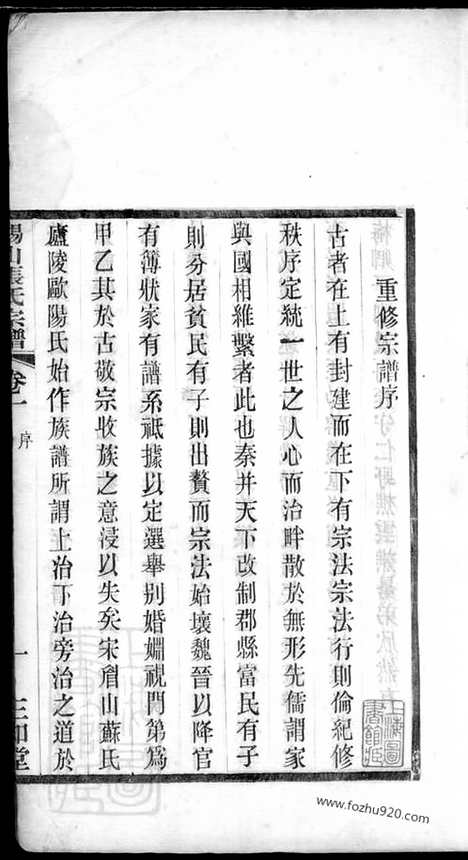 重修宗譜序
古者在上有封建而在下有宗法宗法行則倫紀修
秩序定統一世之人心而治畔散於無形先儒謂家
與國相維繫者此也秦并天下改制郡縣富民有子
則分居貧民有子則出贅而宗法始壞魏晉以降官
有簿狀家有譜系祗據以定選舉别婚姻視門第為
甲乙其於古敬宗收族之意浸以失矣宋眉山蘇氏
廬陵歐陽氏始作族譜所謂上治下治旁治之道於
錫山張氏宗譜 卷一 序 一 三和堂
上海圖書館藏
www.fozhu920.com